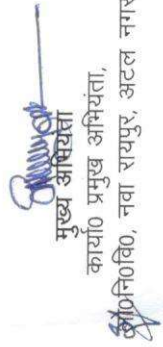 मुख्य अभियंता
कार्या0 प्रमुख अभियंता,
लो0नि0वि0, नवा रायपुर, अटल नगर